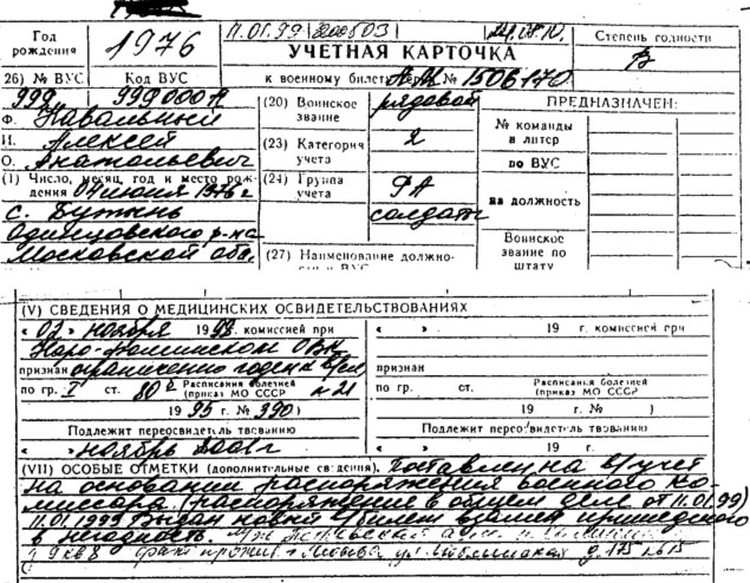 Год рождения 1976 11.01.99
УЧЕТНАЯ КАРТОЧКА
Степень годности В
26) № ВУС Код ВУС к военному билету АК № 1506170
999 999000А
Ф. Навальный
И. Алексей
О. Анатольевич
(1) Число, месяц, год и место рождения 04 июня 1976 г
с. Бутынь
Одинцовского р-на
Московской обл.
(20) Воинское звание рядовой
(23) Категория учета 2
(24) Группа учета РА
солдаты
(27) Наименование должно-
ПРЕДНАЗНАЧЕН:
№ команды и литер
по ВУС
на должность
Воинское звание по штату
(V) СВЕДЕНИЯ О МЕДИЦИНСКИХ ОСВИДЕТЕЛЬСТВОВАНИЯХ
« 02 » ноября 1998 комиссией при
Наро-Фоминском ОВК
признан ограниченно годен к в/сл
по гр. I ст. 80 Расписания болезней
(приказ МО СССР
1995 г. № 390)
Подлежит переосвидетельствованию
« » ноябрь 2001 г
« » 19 г. комиссией при
признан
по гр. ст. Расписания болезней
(приказ МО СССР
19 г. № )
Подлежит переосвидетельствованию
« » 19 г.
(VII) ОСОБЫЕ ОТМЕТКИ (дополнительные сведения). Поставлен на в/учет
на основании распоряжения военного ко-
миссара (распоряжение в общем деле от 11.01.99)
11.01.1999 Выдан новый в/билет взамен пришедшего
в негодность.
г. Москва ул. Люблинская д. 175